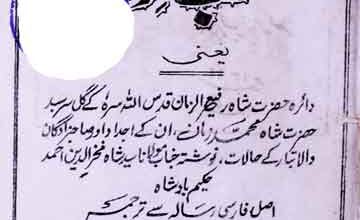 یعنی
دائرہ حضرت شاہ رفیع الزمان قدس اللہ سرہٗ کے گل سر سبد
حضرت شاہ محمد زماںؒ، ان کے اجداد اور صاحبزادگان
والا تبار کے حالات، نوشتہ جناب مولانا سید شاہ فخر الدین احمد
حکیم بادشاہ
اصل فارسی رسالہ سے ترجمہ